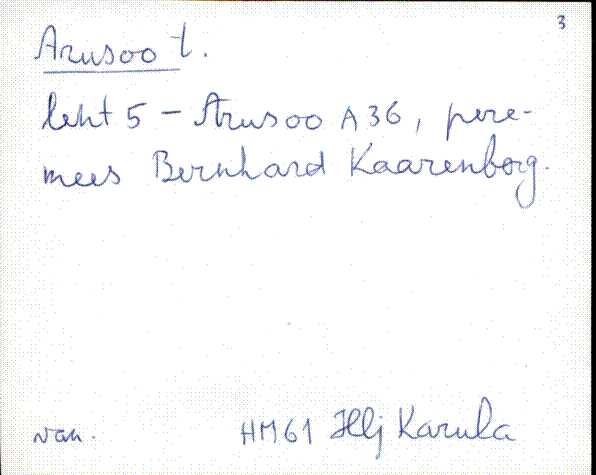 3
Arusoo t.
leht 5 - Arusoo A36, pere-
mees Bernhard Kaarenborg.
van. HM61 Hlj Karula